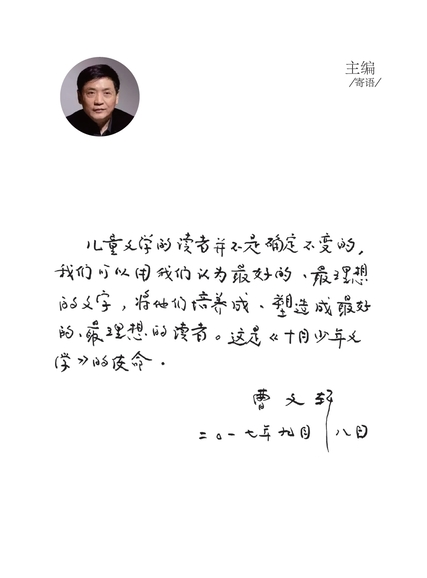 主编
/寄语/
儿童文学的读者并不是确定不变的,
我们可以用我们认为最好的、最理想
的文字,将他们培养成、塑造成最好
的、最理想的读者。这是《十月少年文
学》的使命.
曹文轩
二〇一七年九月八日